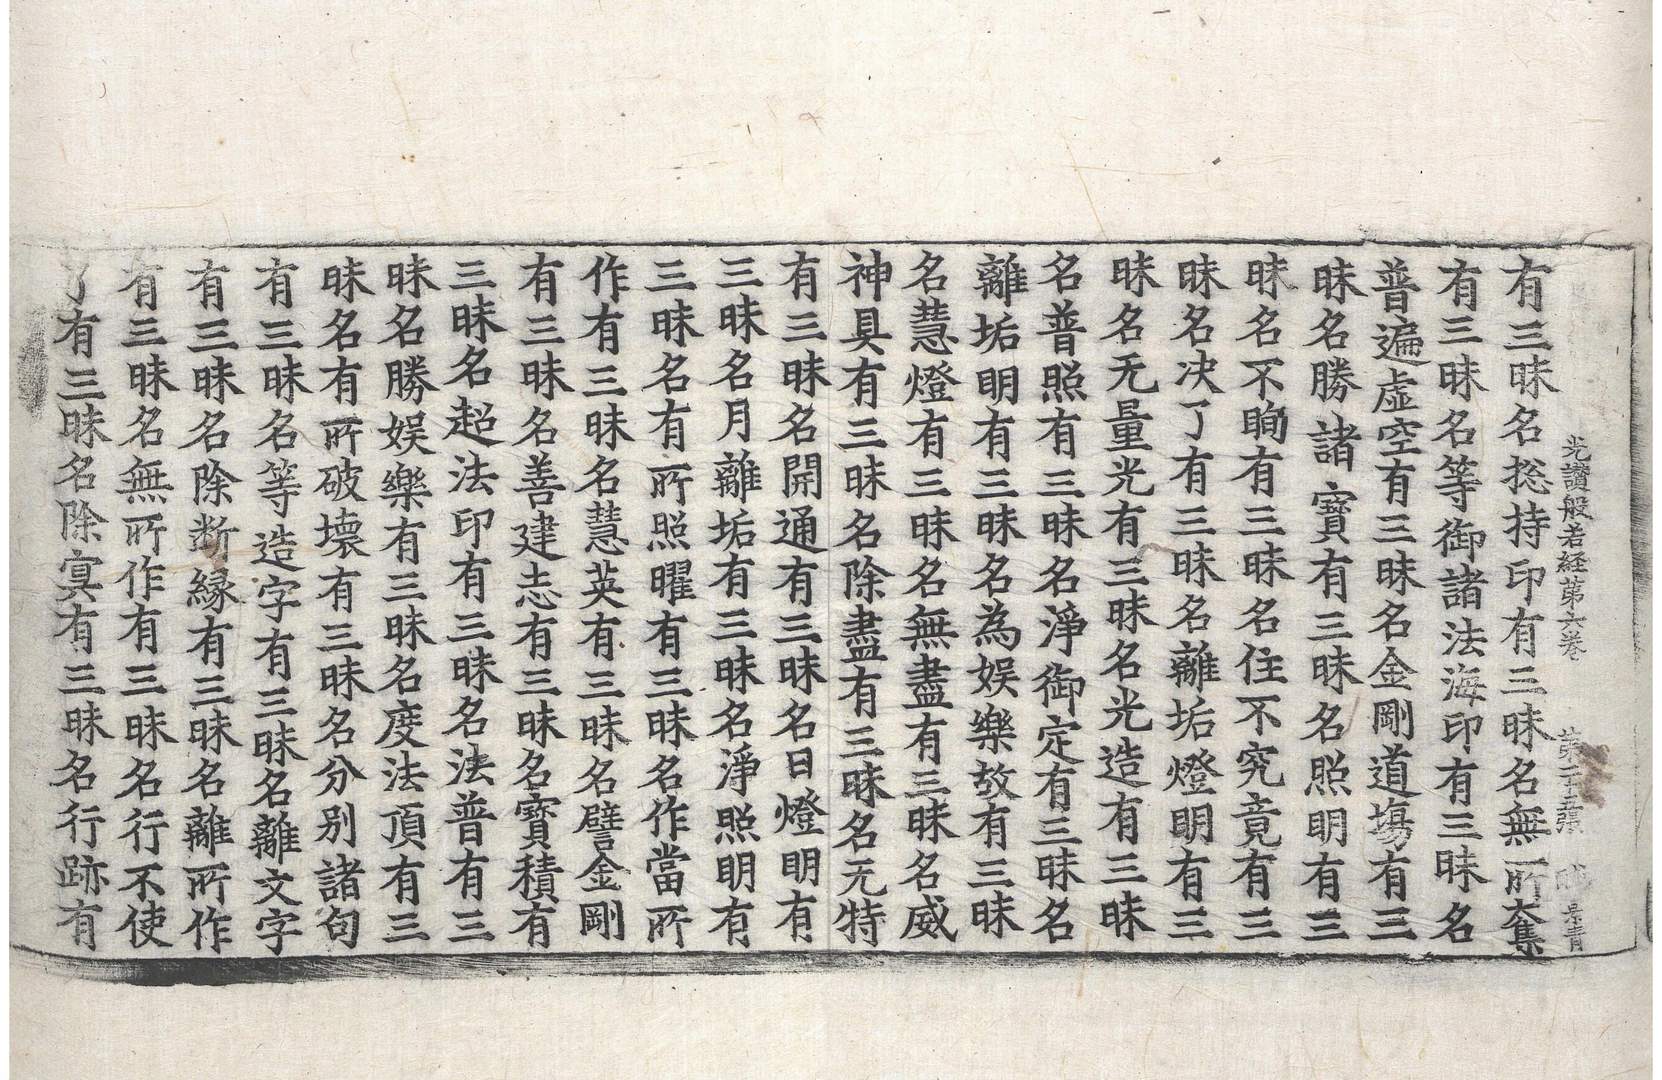 光讃般若経苐六巻　苐二十五張　景青
有三昧名捴持印有三昧名無所奪
有三昧名等御諸法海印有三昧名
普遍虛空有三昧名金剛道場有三
昧名勝諸寳有三昧名照明有三
昧名不眴有三昧名住不究竟有三
昧名决了有三昧名離垢燈明有三
昧名无量光有三昧名光造有三昧
名普照有三昧名淨御定有三昧名
離垢明有三昧名為娯樂敎有三昧
名慧燈有三昧名無盡有三昧名威
神具有三昧名除盡有三昧名无特
有三昧名開通有三昧名日燈明有
三昧名月離垢有三昧名淨照明有
三昧名有所照曜有三昧名作當所
作有三昧名慧英有三昧名譬金剛
有三昧名善建志有三昧名寳積有
三昧名超法印有三昧名法普有三
昧名勝娯樂有三昧名度法頂有三
昧名有所破壞有三昧名分別諸句
有三昧名等造字有三昧名離文字
有三昧名除断緣有三昧名離所作
有三昧名無所作有三昧名行不使
了有三昧名除㝠有三昧名行跡有